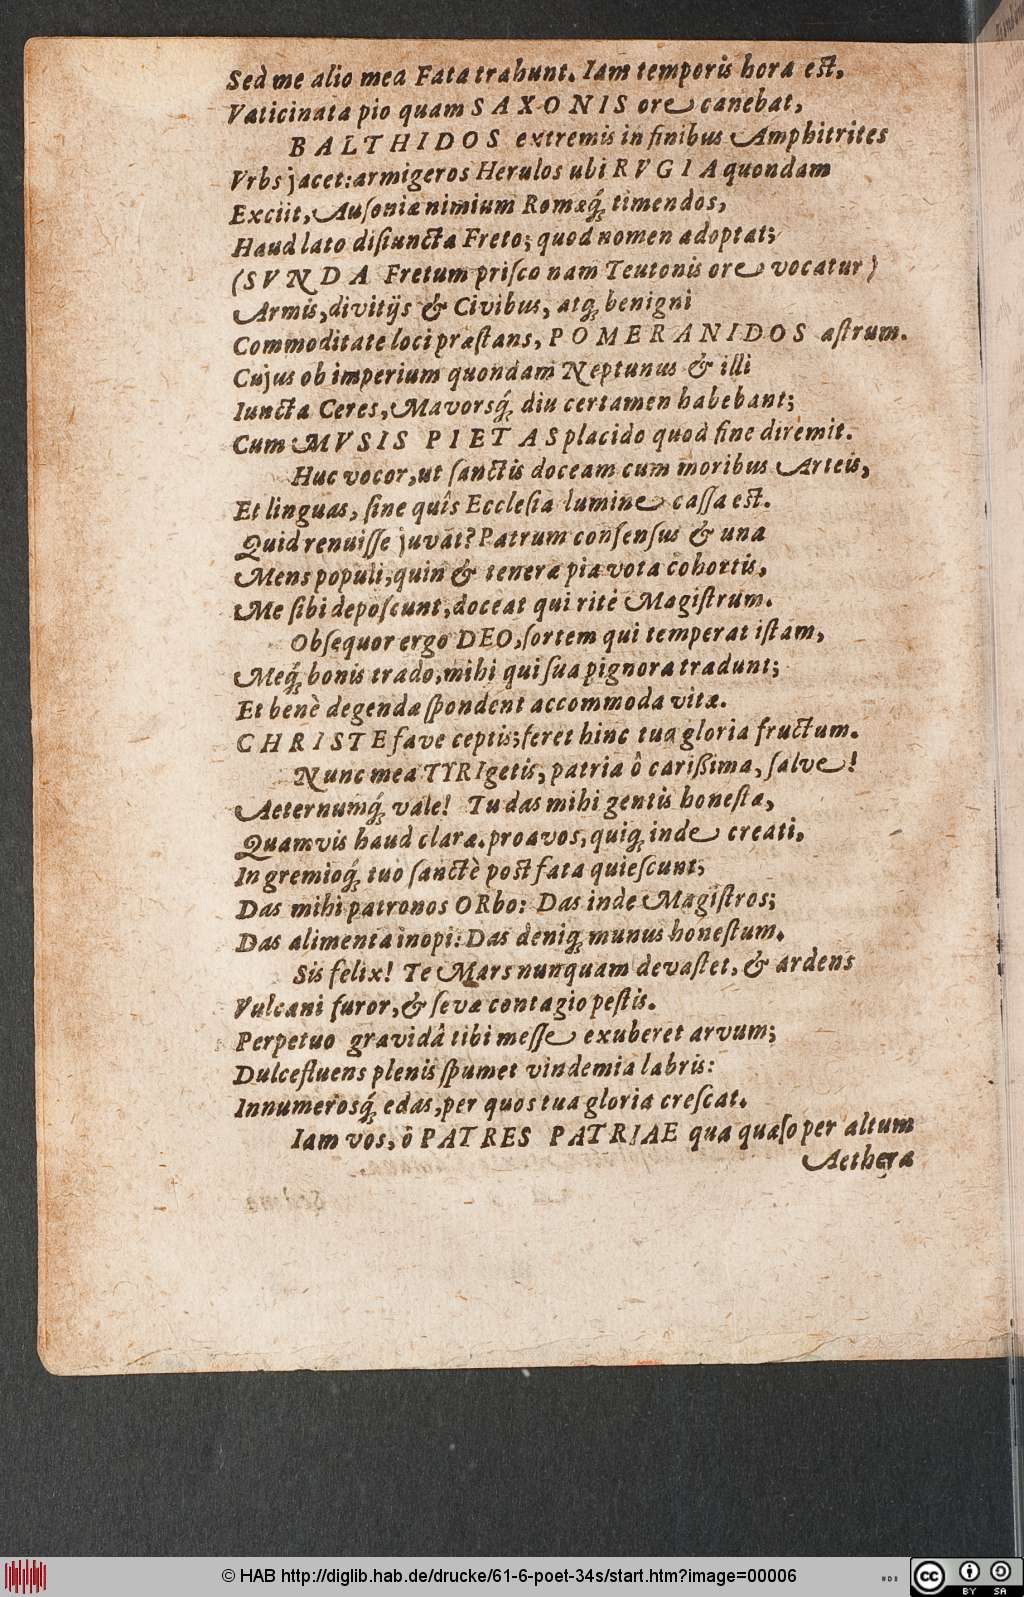 Sed me alio mea Fata trahunt. Iam temporis hora est,
Vaticinata pio quam SAXONIS ore canebat,
BALTHIDOS extremis in finibus Amphitrites
Vrbs jacet: armigeros Herulos ubi RVGIA quondam
Exciit, Auſoniæ nimium Romæq́; timendos,
Haud lato diſiuncta Freto; quod nomen adoptat;
(SVNDA Fretum priſco nam Teutonis ore vocatur)
Armis, divitijs & Civibus, atq; benigni
Commoditate loci præſtans, POMERANIDOS aſtrum.
Cujus ob imperium quondam Neptunus & illi
Iuncta Ceres, Mavorsq́; diu certamen habebant;
Cum MVSIS PIETAS placido quod fine diremit.
Huc vocor, ut ſanctis doceam cum moribus Arteis,
Et linguas, ſine quîs Eccleſia lumine caſſa est.
Quid renuiſſe juvat? Patrum conſenſus & una
Mens populi, quin & teneræ pia vota cohortis,
Me ſibi depoſcunt, doceat qui ritè Magiſtrum.
Obſequor ergo DEO, ſortem qui temperat iſtam,
Meq́; bonis trado, mihi qui ſua pignora tradunt;
Et benè degendæ ſpondent accommoda vitæ.
CHRISTE fave ceptis; feret hinc tua gloria fructum.
Nunc mea TYRIgetis, patria ô carißima, ſalve!
Aeternumq́; vale! Tu das mihi gentis honeſtæ,
Quamvis haud claræ. proavos, quiq; inde creati,
In gremioq́; tuo ſanctè post fata quieſcunt;
Das mihi patronos ORbo: Das inde Magiſtros;
Das alimenta inopi: Das deniq; munus honeſtum.
Sis felix! Te Mars nunquam devaſtet, & ardens
Vulcani furor, & ſevæ contagio peſtis.
Perpetuo gravidâ tibi meſſe exuberet arvum;
Dulcefluens plenis ſpumet vindemia labris:
Innumerosq́; edas, per quos tua gloria creſcat.
Iam vos, ô PATRES PATRIAE qua quæſo per altum
Aethera
© HAB http://diglib.hab.de/drucke/61-6-poet-34s/start.htm?image=00006
cc BY SA